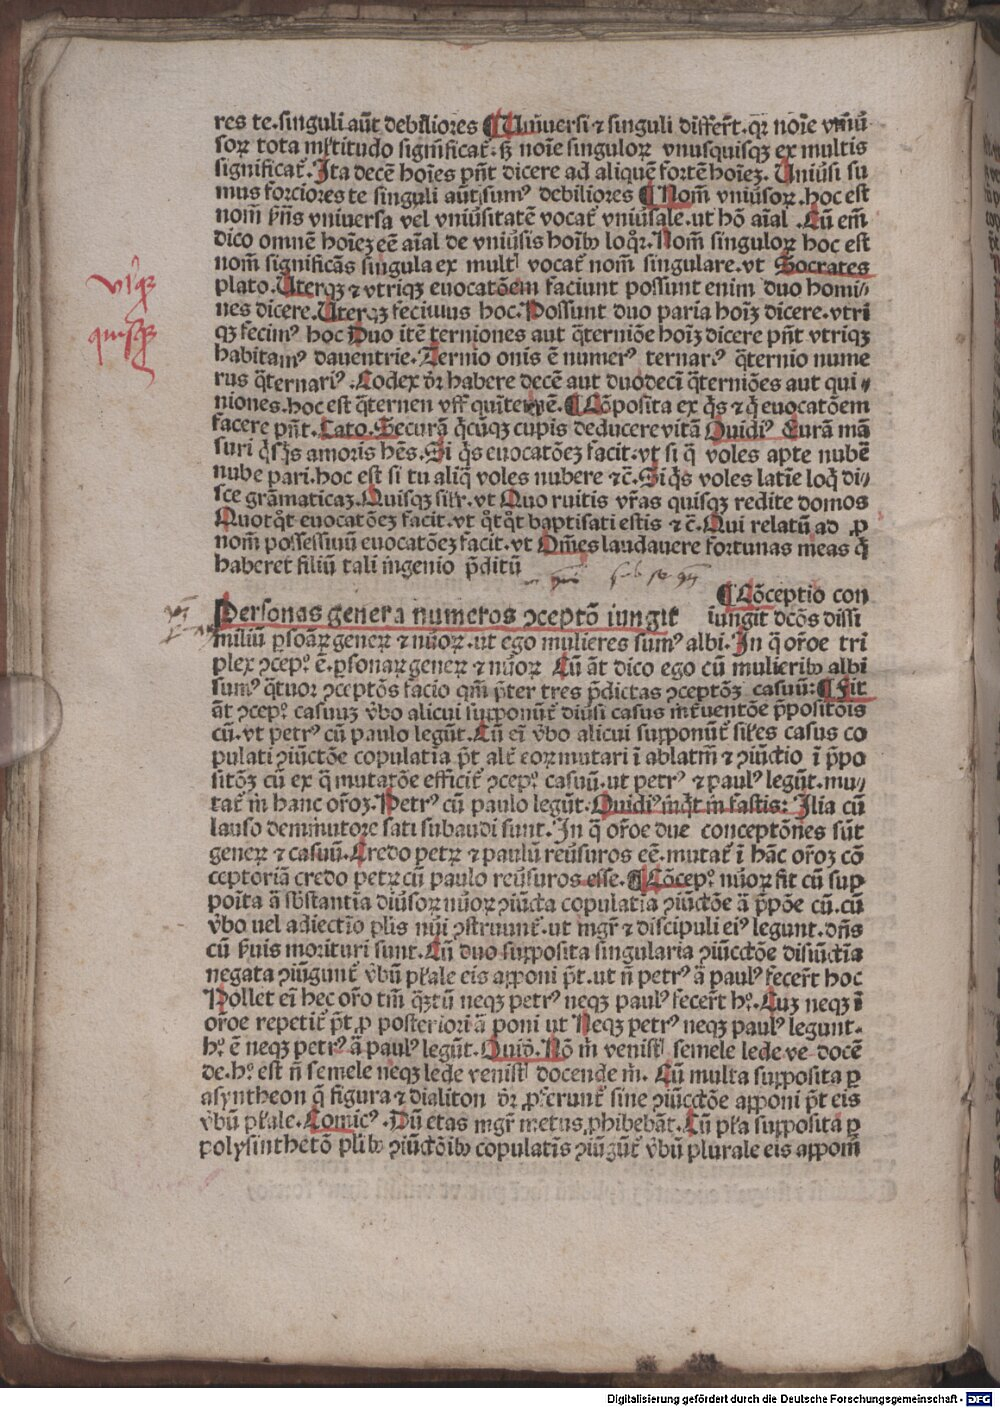 res te.singuli aūt debiliores ¶ Uniūersi ⁊ singuli differt̄.qꝛ noīe vniū
soꝝ tota ml̄titudo significat᷑.sꝫ noīe singuloꝝ vnusquisqꝫ ex multis
significat᷑.Ita decē hoīes pn̄t dicere ad aliquē fortē hoīeꝫ. Uniūsi su
mus forciores te singuli aūt sumꝰ debiliores ¶ Nom̄ vniūsoꝝ.hoc est
nom̄ p̄n̄s vniuersa vel vniūsitatē vocat᷑ vniūsale.ut hō aīal .Cū em̄
dico omnē hoīeꝫ eē aīal de vniūsis hoībꝰ loqͦꝛ.Nom̄ singuloꝝ hoc est
nom̄ significās singula ex multꝭ vocat᷑ nom̄ singulare.vt Socrates
plato.Uterqꝫ ⁊ vtriqꝫ euocatōem faciunt possunt enim duo homi⸗
nes dicere.Uterqꝫ fecimus hoc.Possunt duo paria hoīꝫ dicere.vtri
qꝫ fecimꝰ hoc Duo itē terniones aut q̄terniōe hoīꝫ dicere pn̄t vtriqꝫ
habitamꝰ dauentrie.Ternio onis ē numerꝰ ternarꝰ q̄ternio nume
rus q̄ternariꝰ.Codex dꝛ̄ habere decē aut duodecī q̄terniōes aut qui⸗
niones.hoc est q̄ternen vff quīternē.¶ Cōposita ex qͥs ⁊ qͥ euocatōem
facere pn̄t.Cato.Securā qͥcūqꝫ cupis deducere vitā Ouidiꝰ Curā mā
suri qͥsqͥs amoris hēs.Si qͥs euocatōeꝫ facit.vt si qͣ voles apte nubē
nube pari.hoc est si tu aliqͣ voles nubere ⁊c̄.Siqͥs voles latīe loqͥ di⸗
sce grāmaticaꝫ.Quisqꝫ silꝛ̄.vt Quo ruitis vr̄as quisqꝫ redite domos
Quotqͦt euocatōeꝫ facit.vt qͦtqͦt baptisati estis ⁊ c̄.Qui relatū ad ꝓ
nom̄ possessiuū euocatōeꝫ facit.vt Om̄es laudauere fortunas meas qͥ
haberet filiū tali īngenio p̄ditū
¶ Cōceptio con
Personas genera numeros ꝯceptō iungit iungit dc̄ōs dissi
miliū ꝑsoāꝝ geneꝝ ⁊ nūoꝝ.ut ego mulieres sumꝰ albi.In qͣ oꝛ̄oe tri
plex ꝯcepꝰ ē.ꝑsonaꝝ geneꝝ ⁊ nūoꝝ Cū āt dico ego cū mulieribꝰ albi
sumꝰ q̄tuoꝛ ꝯceptōs facio qm̄ p̄ter tres p̄dictas ꝯceptōꝫ casuū:¶ Fit
āt ꝯcepꝰ casuuꝫ v̄bo alicui supponūt᷑ diūsi casus īnt᷑uentōe p̄positōis
cū.vt petrꝰ cū paulo legūt.Cū eī v̄bo alicui supponūt᷑ sil̄es casus co
pulati ꝯiūctōe copulatīa pt̄ alt᷑ eoꝝ mutari ī ablatīn ⁊ ꝯiūctio ī p̄po
sitōꝫ cū ex qͣ mutatōe efficit᷑ ꝯcepꝰ casuū.ut petrꝰ ⁊ paulꝰ legūt.mu⸗
tat᷑ īn hanc oꝛ̄oꝫ.Petrꝰ cū paulo legūt.Ouidiꝰ īnqͥt īn fastis: Ilia cū
lauso de numitore sati subaudi sunt.In qͣ oꝛ̄oe due conceptōnes sūt
geneꝝ ⁊ casuū.Credo petꝝ ⁊ paulū reūsuros eē.mutat᷑ ī hāc oꝛ̄oꝫ cō
ceptoriā credo petꝝ cū paulo reūsuros esse.¶ Cōcepꝰ nūoꝝ fit cū sup
poīta ā sb̄stantīa diūsoꝝ nūoꝝ ꝯiūcta copulatīa ꝯiūctōe ā p̄pōe cū.cū
v̄bo uel adiectīo pl̄is nūi ꝯstruunt᷑.ut mgꝛ̄ ⁊ discipuli eiꝰ legunt.dn̄s
cū ẜuis morituri sunt.Cū duo supposita singularia ꝯiūctōe disiūctīa
negata ꝯiūgunt᷑ v̄bū pl̄ale eis apponi pt̄.ut n̄ petrꝰ ā paulꝰ fecerūt hoc
Pollet eī hec oꝛ̄o tm̄ qͣꝫtū neqꝫ petrꝰ neqꝫ paulꝰ fecerūt hꝰ.Cuꝫ neqꝫ ī
oꝛ̄oe repetit᷑ pt̄ ꝓ posteriori ā poni ut Neqꝫ petrꝰ neqꝫ paulꝰ legunt.
hꝰ ē neqꝫ petrꝰ ā paulꝰ legūt.Ouid̄.Nō mͥ venistꝭ semele lede ve docē
de.hꝰ est n̄ semele neqꝫ lede venistꝭ docende mͥ. Cū multa supposita ꝑ
asyntheon qͣ figura ⁊ dialiton dꝛ̄ ꝓferunt᷑ sine ꝯiūctōe apponi pt̄ eis
v̄bū pl̄ale.Comicꝰ.Dū etas mgꝛ̄ metus ꝓhibebāt.Cū pl̄a supposita ꝑ
polysinthetō plībꝰ ꝯiūctōibꝰ copulatīs ꝯiūgūt᷑ v̄bū plurale eis apponī
Digitalisierung gefördert durch die Deutsche Forschungsgemeinschaft - DFG